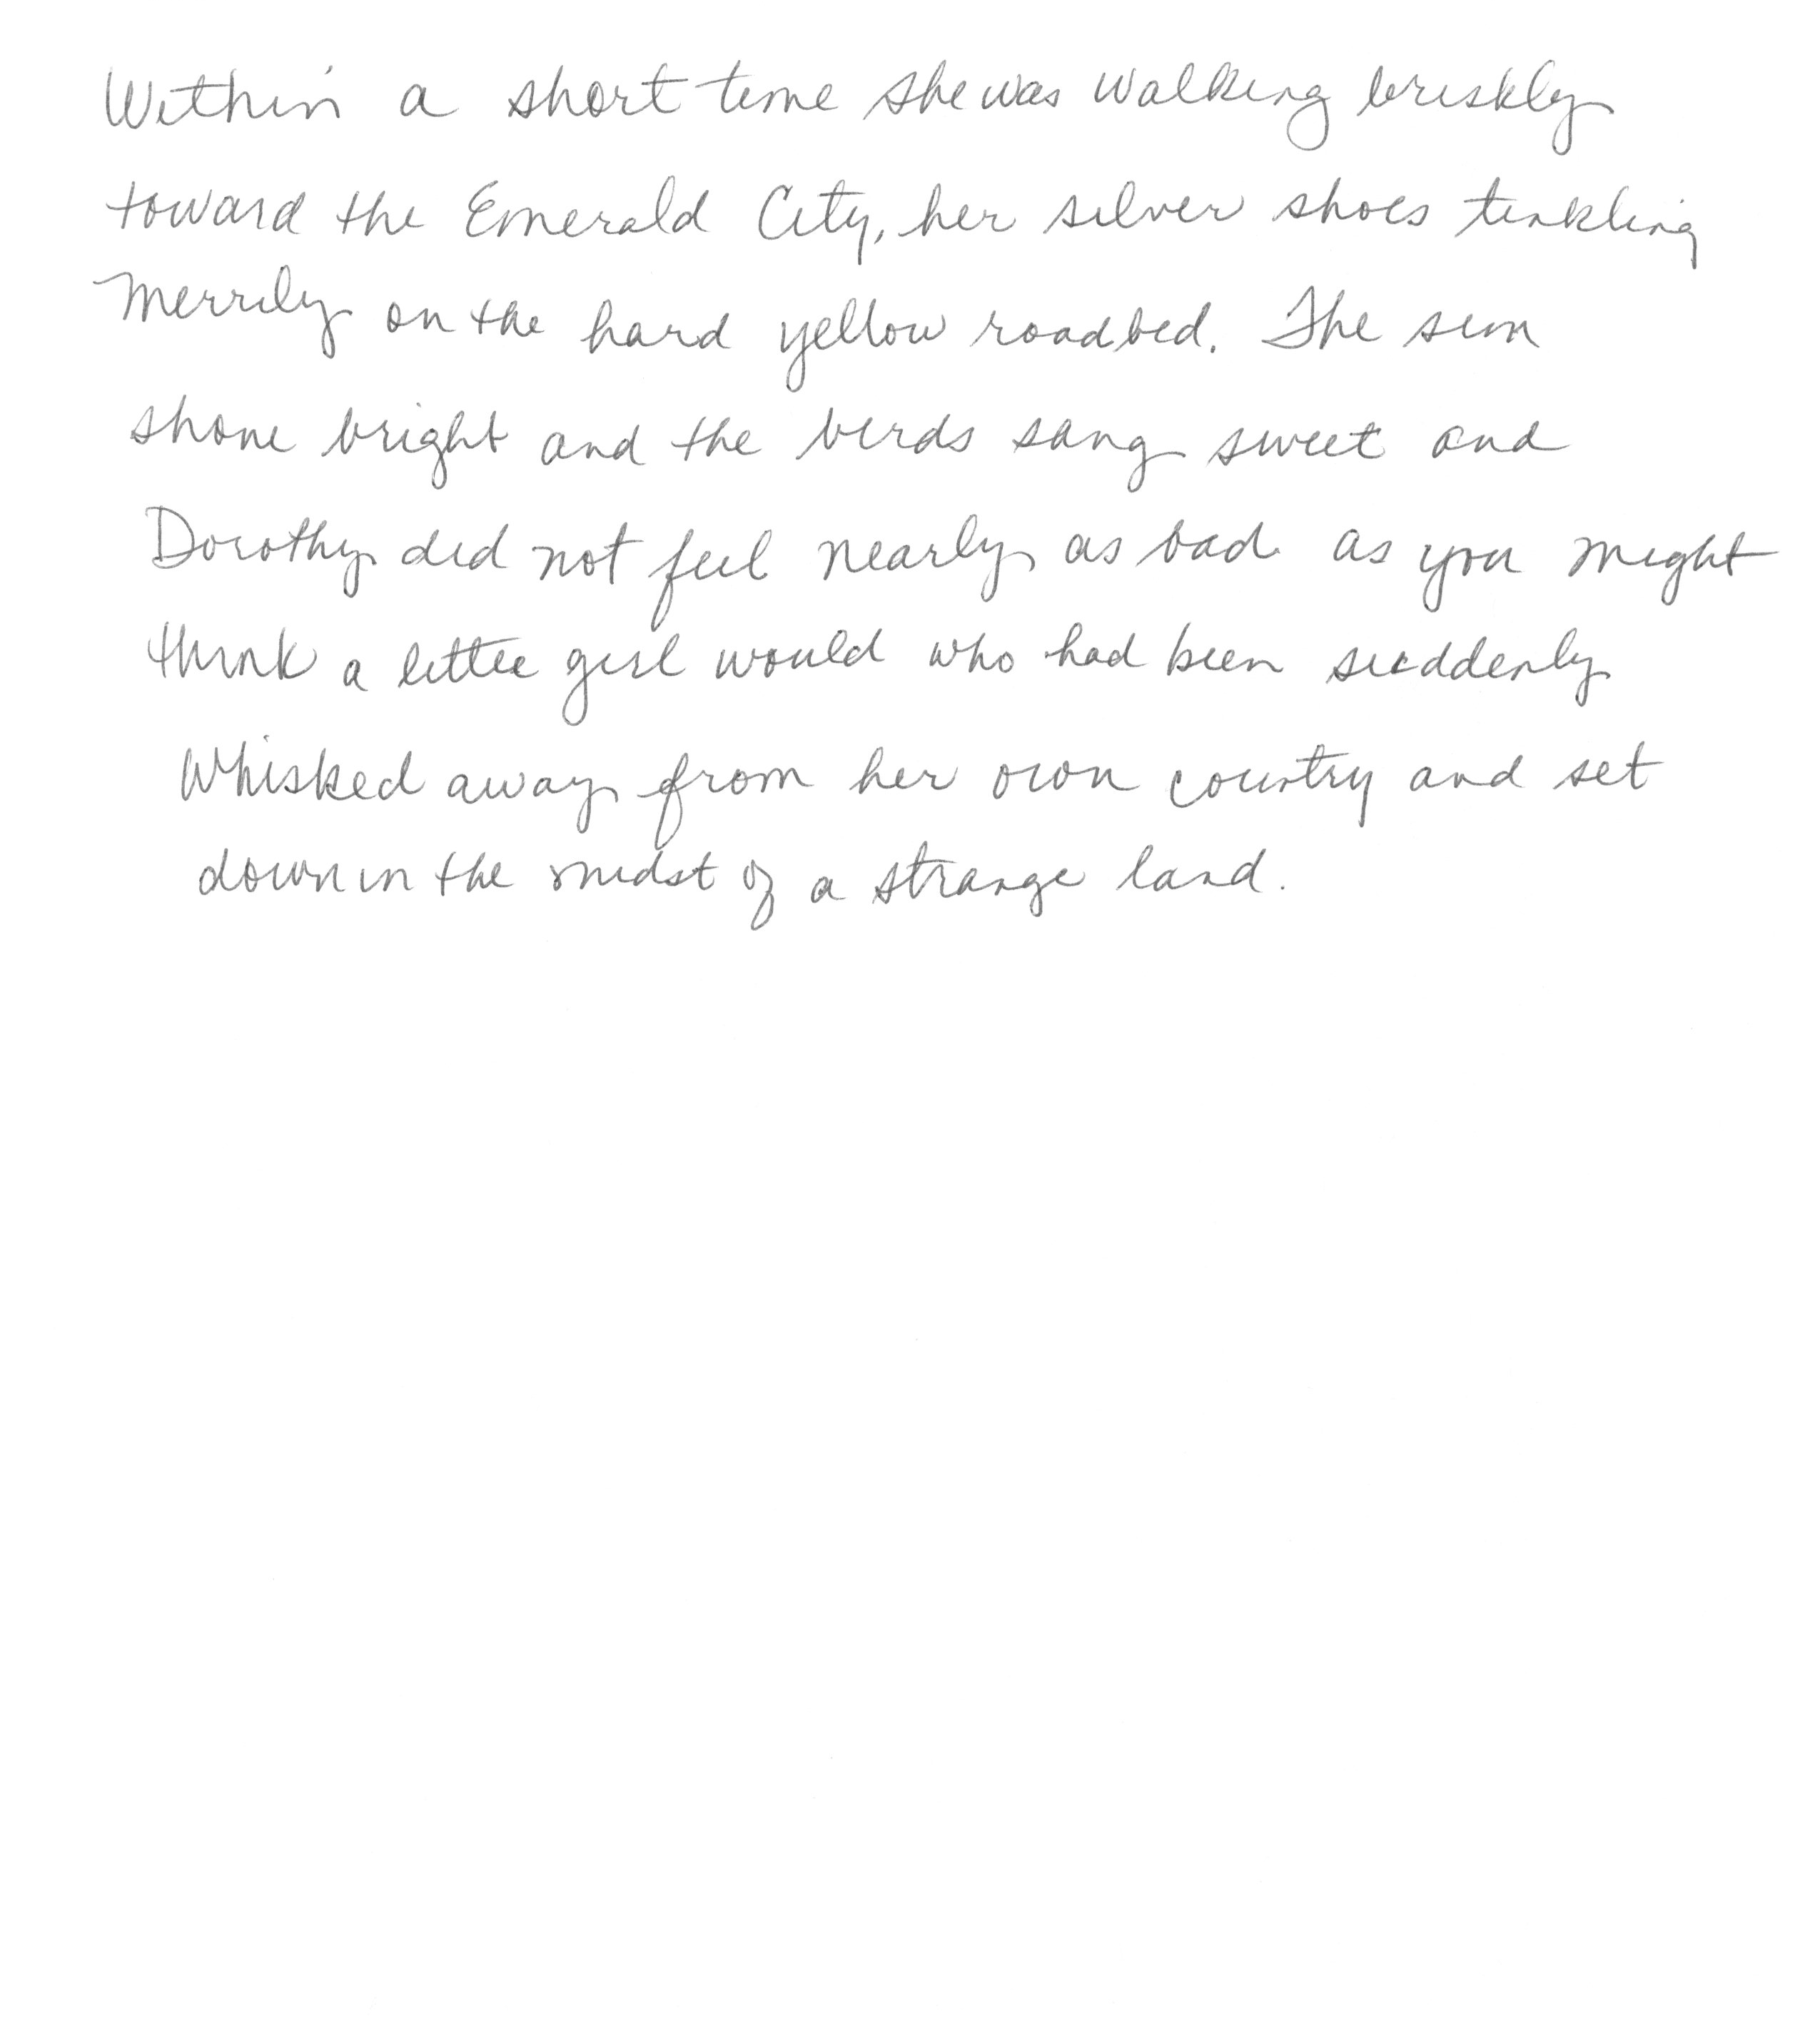 Within a short time she was walking briskly
toward the Emerald City, her silver shoes tinkling
merrily on the hard yellow roadbed. The sun
shone bright and the birds sang sweet and
Dorothy did not feel nearly as bad as you might
think a little girl would who had been suddenly
whisked away from her own country and set
down in the midst of a strange land.